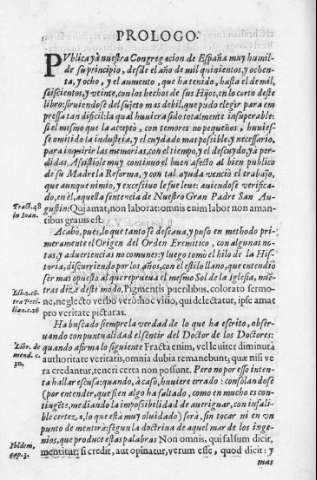 PROLOGO.
PVblica yà nuestra Congregacion de España muy humil-
de su principio, desde el año de mil quiñientos, y ochen-
ta, y ocho, y el aumento, que ha tenido, hasta el de mil,
seiscientos, y veinte, con los hechos de sus Hijos, en lo corto deste
libro: siruiendose del sujeto mas debil, que pudo elegir para em-
pressa tan dificil: la qual huviera sido totalmente insuperable:
si el mismo que la acepto, con temores no pequeños, huvies-
se omitido la industria, y el cuydado mas possible, y necessario,
para inquirir las memorias, con el tiempo, y el descuydo, ya per-
didas. Assistiole muy continuo el buen afecto al bien publico
de su Madre la Reforma, y con tal ayuda venciò el trabajo,
que aunque nimio, y excessivo le fue leue: auiendose verifica-
do, en èl, aquella sentencia de Nuestro Gran Padre San Au-
gustin: Qui amat, non laborat: omnis enim labor non aman-
tibus grauis est.
Tract. 48
in Ioan.
Acabò, pues, lo que tanto se deseaua, y puso en methodo pri-
meramente el Origen del Orden Eremitico, con algunas no-
tas, y advertencias no comunes: y luego tomò el hilo de la His-
toria, discurriendo por los años, con el estilo llano, que entendiò
ser mas opuesto al que reprueua el mismo Sol de la Iglesia, mië-
tras dize deste modo. Pigmentis puerilibus, colorato sermo-
ne, neglecto verbo
qui, delectatur, ipse amat
pro veritate picturas.
Ha buscado siempre la verdad de lo que ha escrito, obser-
uando con puntualidad el sentir del Doctor de los Doctores,
quando afirma lo siguiente Fracta enim, vel leuiter diminuta
authoritate veritatis, omnia dubia remanebunt, quæ nisi ve
ra credantur, teneri certa non possunt. Pero no por esso inten-
ta hallar escusa: quando, à caso, huviere errado: consolandose
(por entender, que si en algo ha faltado, como en mucho es con-
tingẽte, mediando la impossibilidad de aueriguar, con infali-
ble certez, a, lo que està muy oluidado) serà, sin tocar ni en vn
punto de mentira: segun la doctrina de aquel mar de los inge-
nios, que produce estas palabras Non omnis, qui falsum dicit,
mentitur: si credit, aut opinatur, verum esse, quod dicit: y
Lib. de
mend. c.
Ibidem,
cap. 3.
mas